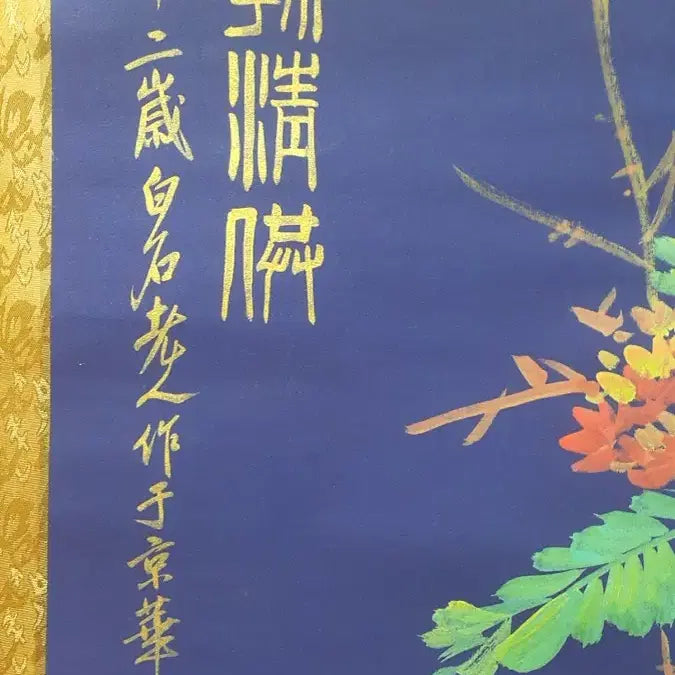 清供
二歲白石老人作于京華